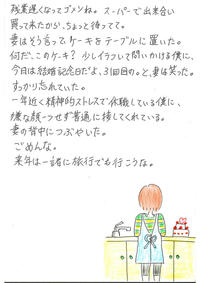 残業遅くなってゴメンね。スーパーで出来合い
買って来たから、ちょっと待ってて。
妻はそう言って、ケーキをテーブルに置いた。
何だ、このケーキ？少しイラついて問いかける僕に、
今日は結婚記念日だよ、31回目の。と、妻は笑った。
すっかり忘れていた。
一年近く精神的ストレスで休職している僕に、
嫌な顔一つせず普通に接してくれている。
妻の背中につぶやいた。
ごめんな。
来年は一緒に旅行でも行こうな。